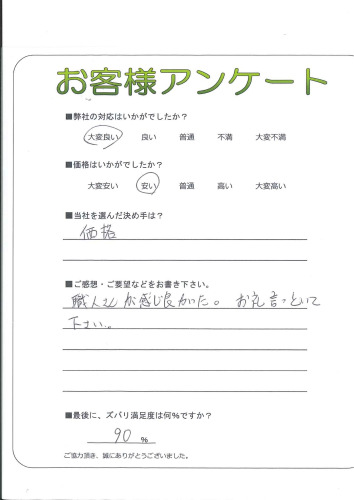 お客様アンケート
■弊社の対応はいかがでしたか？
大変良い 良い 普通 不満 大変不満
■価格はいかがでしたか？
大変安い 安い 普通 高い 大変高い
■当社を選んだ決め手は？
価格
■ご感想・ご要望などをお書き下さい。
職人さんが感じ良かった。 お礼言っといて
下さい。
■最後に、ズバリ満足度は何％ですか？
90 ％
ご協力頂き、誠にありがとうございました。